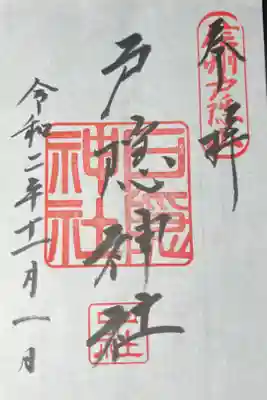 奉拝
信州戸隠
戸隠神社
戸隠神社
令和二年十一月一日